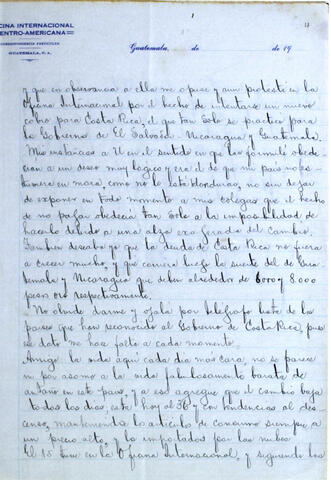 1
CINA INTERNACIONAL
ENTRO-AMERICANA
CORRESPONDENCIA PARTICULAR
GUATEMALA, C.A.
Guatemala, de de 19
y que en observancia a ella me opuse y aun protesté en la
Oficina Internacional por el hecho de intentarse un nuevo
cobro para Costa Rica, el que tan solo se practicó para
los Gobiernos de El Salvador - Nicaragua y Guatemala.
Mis instancias a U en el sentido en que las formulé obede-
cian a un deseo muy logico y era el de que mi pais no es-
tuviera en mora, como no lo está Honduras, no sin dejar
de exponer en todo momento a mis colegas que el hecho
de no pagar obedecia tan solo a la imposibilidad de
hacerlo debido a una alza exagerada del cambio.
Tambien deseaba yo que la deuda de Costa Rica no fuera
a crecer mucho, y que corriera luego la suerte del de Gua-
temala y Nicaragua que deben alrededor de 6000 y 8.000
pesos oro respectivamente.
No olvide darme y ojalá por telégrafo lista de los
paises que han reconocido al Gobierno de Costa Rica, pues
ese dato me hace falta a cada momento.
Amigo: la vida aquí cada dia mas cara, no se parece
ni por asomo a la vida fabulosamente barata de
antaño en este pais, y a eso agregue que el cambio baja
todos los dias, está hoy al 30 y con tendencias al des-
censo, manteniendo los articulos de consumo siempre a
un precio alto, y los importados por las nubes
El 15 in la Oficina Internacional, y siguiendo los